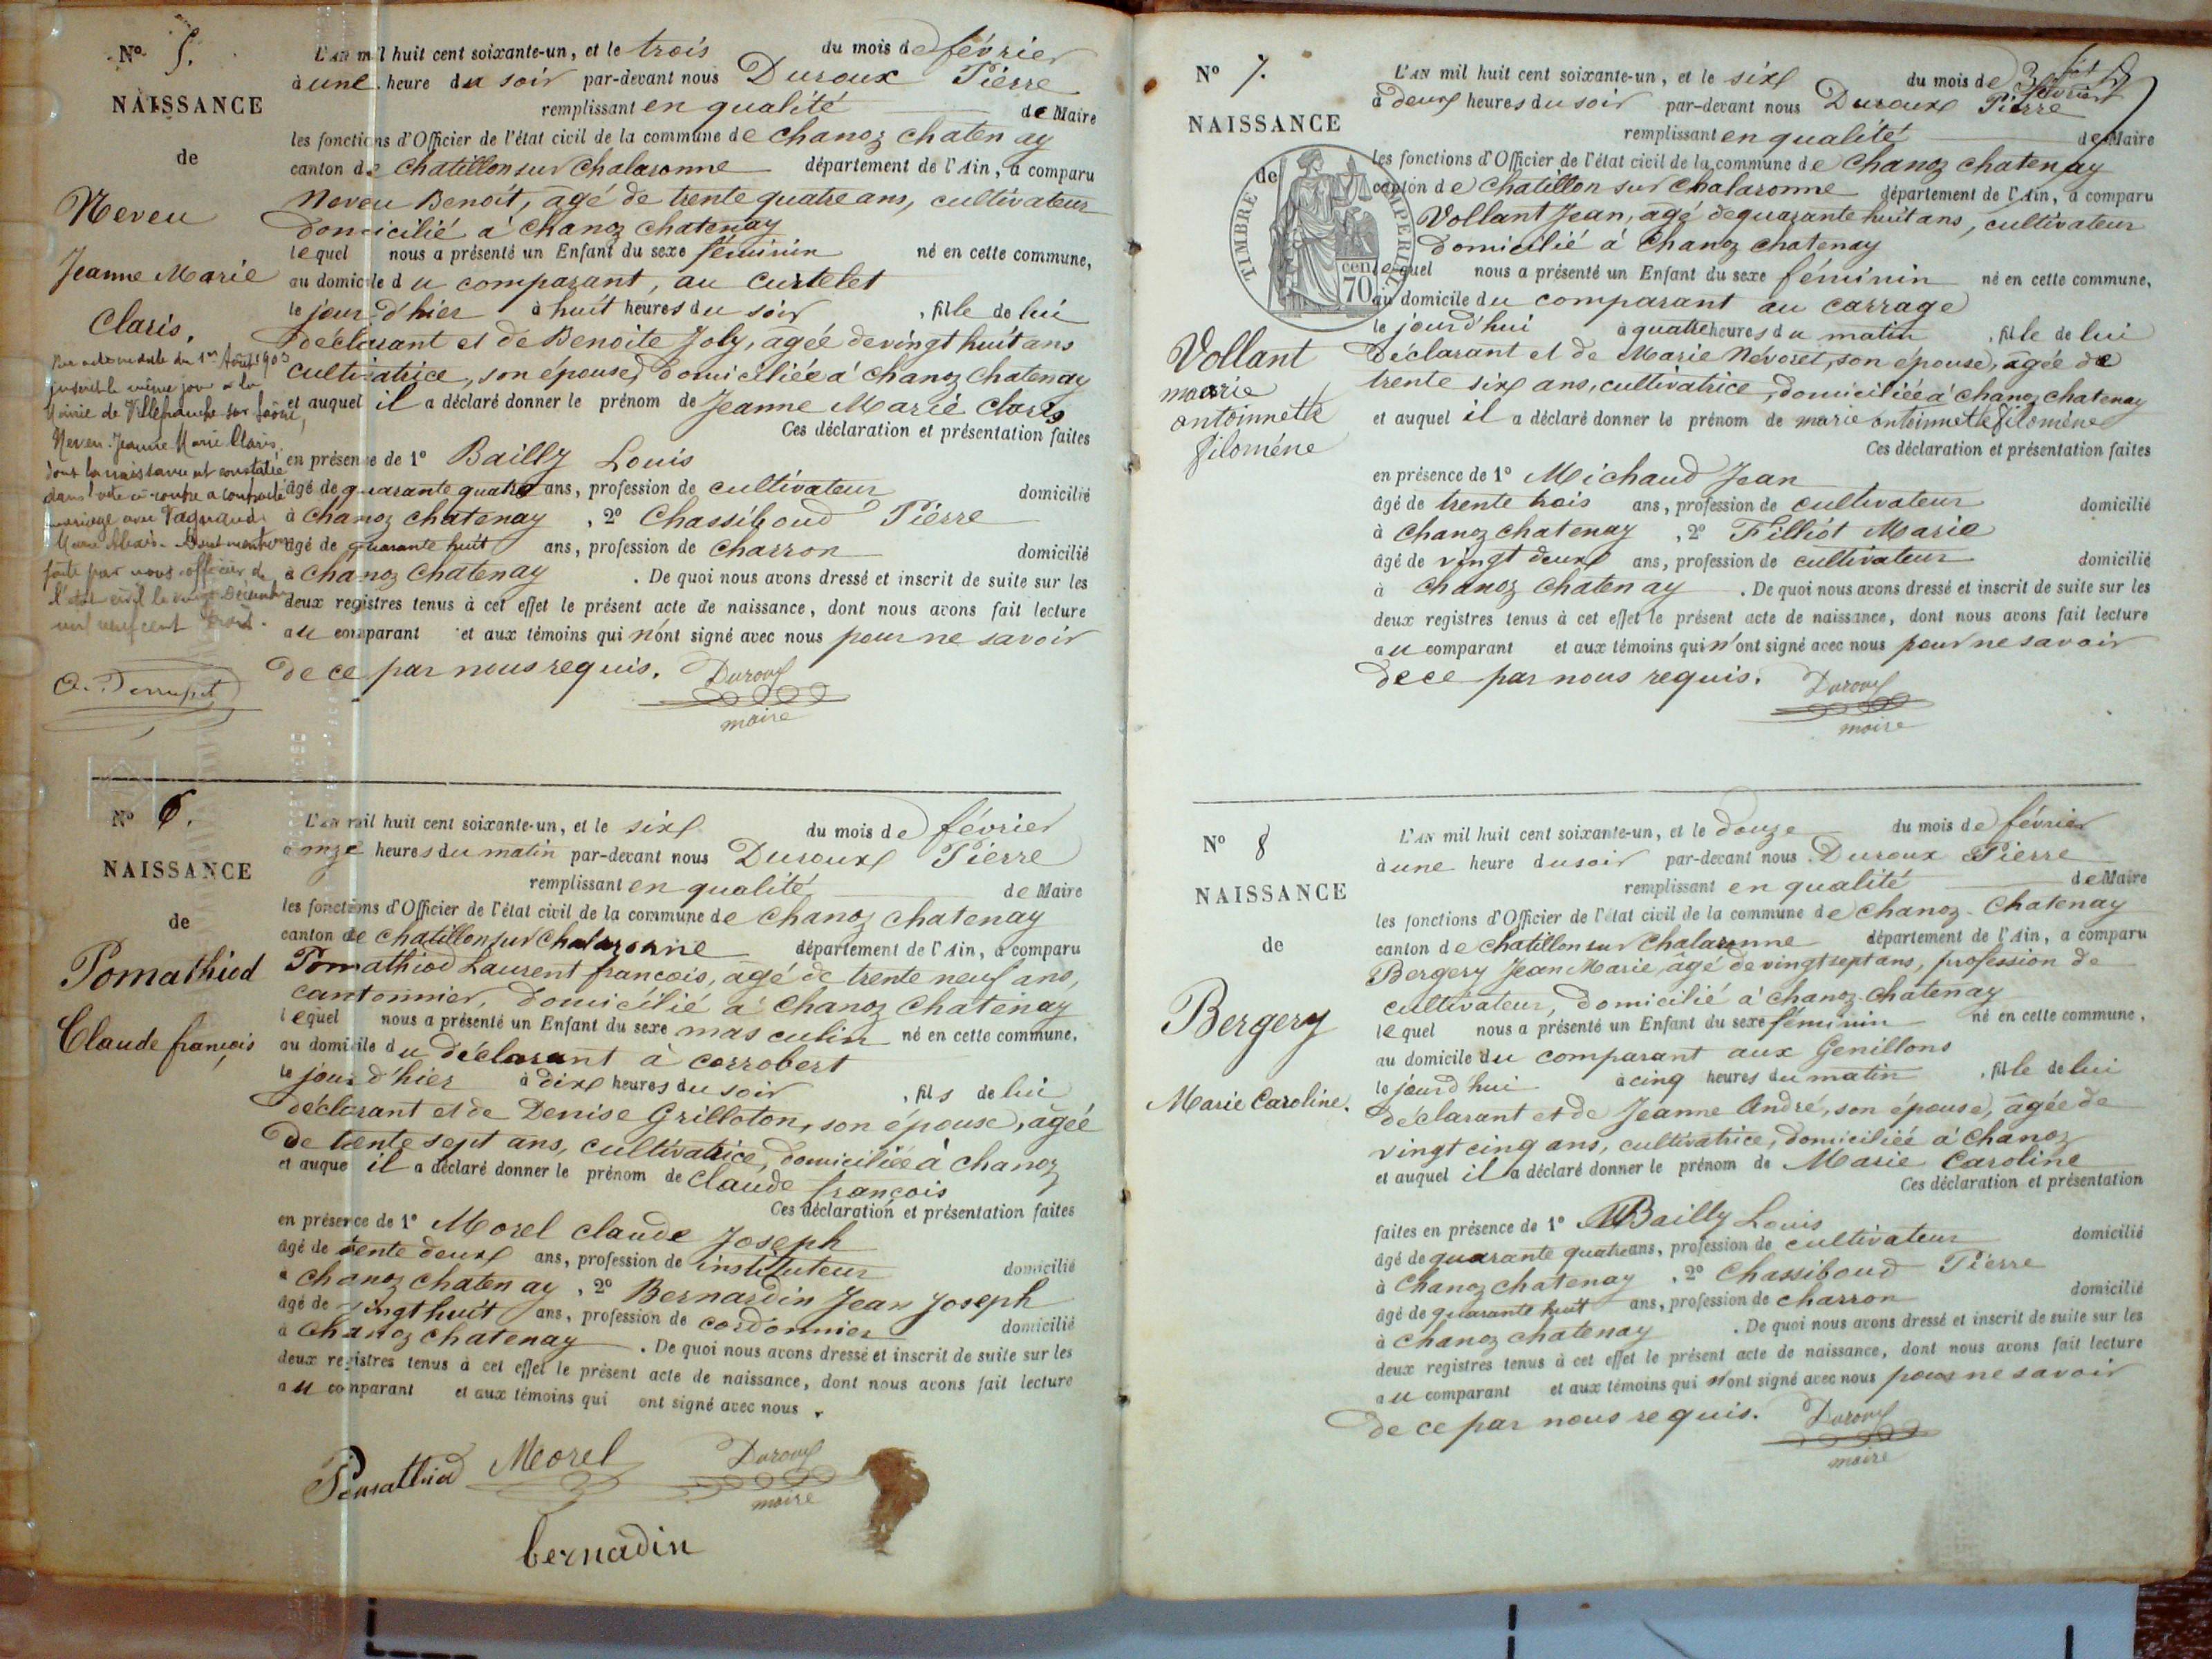 N° 5.
NAISSANCE
de
Neveu
Jeanne Marie
Claris.
Par acte en date du 1er Août 1903
inscrit le même jour à la
Mairie de Villefranche sur Saône,
Neveu Jeanne Marie Claris
dont la naissance est constatée
dans l'acte ci-contre a contracté
mariage avec Vagnaud
Marie Alexis. Dont mention
faite par nous officier de
l'état civil le vingt Décembre
mil neuf cent trois.
L'AN mil huit cent soixante-un, et le trois du mois de février
à une heure du soir par-devant nous Duroux Pierre
remplissant en qualité de Maire
les fonctions d'Officier de l'état civil de la commune de Chanoz chatenay
canton de Chatillon sur Chalaronne département de l'Ain, a comparu
Neveu Benoît, âgé de trente quatre ans, cultivateur
domicilié à Chanoz chatenay
lequel nous a présenté un Enfant du sexe féminin né en cette commune,
au domicile du comparant, au Curtelet
le jour d'hier à huit heures du soir, fille de lui
déclarant et de Benoite Joly, âgée de vingt huit ans
cultivatrice, son épouse, domiciliée à chanoz chatenay
et auquel il a déclaré donner le prénom de Jeanne Marie Claris
Ces déclaration et présentation faites
en présence de 1° Bailly Louis
âgé de quarante quatre ans, profession de cultivateur domicilié
à Chanoz chatenay, 2° Chassiboud Pierre
âgé de quarante huit ans, profession de charron domicilié
à Chanoz chatenay. De quoi nous avons dressé et inscrit de suite sur les
deux registres tenus à cet effet le présent acte de naissance, dont nous avons fait lecture
au comparant et aux témoins qui n'ont signé avec nous pour ne savoir
de ce par nous requis. Duroux
maire
N° 6.
NAISSANCE
de
Pomathiod
Claude françois
L'AN mil huit cent soixante-un, et le six du mois de février
à onze heures du matin par-devant nous Duroux Pierre
remplissant en qualité de Maire
les fonctions d'Officier de l'état civil de la commune de Chanoz chatenay
canton de Chatillon sur Chalaronne département de l'Ain, a comparu
Pomathiod Laurent françois, âgé de trente neuf ans,
cantonnier, domicilié à Chanoz chatenay
lequel nous a présenté un Enfant du sexe masculin né en cette commune,
au domicile du déclarant à corrobert
le jour d'hier à dix heures du soir, fils de lui
déclarant et de Denise Grilloton, son épouse, âgée
de trente sept ans, cultivatrice, domiciliée à chanoz
et auquel il a déclaré donner le prénom de Claude françois
Ces déclaration et présentation faites
en présence de 1° Morel claude Joseph
âgé de trente deux ans, profession de instituteur domicilié
à chanoz chatenay, 2° Bernardin Jean Joseph
âgé de vingt huit ans, profession de cordonnier domicilié
à Chanoz chatenay. De quoi nous avons dressé et inscrit de suite sur les
deux registres tenus à cet effet le présent acte de naissance, dont nous avons fait lecture
au comparant et aux témoins qui ont signé avec nous.
Pomathiod Morel Duroux
maire
bernadin
N° 7.
NAISSANCE
de
TIMBRE IMPERIAL
cen
70
Vollant
marie
antoinette
filomène
L'AN mil huit cent soixante-un, et le six du mois de février
à deux heures du soir par-devant nous Duroux Pierre
remplissant en qualité de Maire
les fonctions d'Officier de l'état civil de la commune de Chanoz chatenay
canton de Chatillon sur Chalaronne département de l'Ain, a comparu
Vollant Jean, âgé de quarante huit ans, cultivateur
domicilié à Chanoz chatenay
lequel nous a présenté un Enfant du sexe féminin né en cette commune,
au domicile du comparant au carrage
le jourd'hui à quatre heures du matin, fille de lui
déclarant et de Marie Névoret, son épouse, âgée de
trente six ans, cultivatrice, domiciliée à chanoz chatenay
et auquel il a déclaré donner le prénom de marie antoinette filomène
Ces déclaration et présentation faites
en présence de 1° Michaud Jean
âgé de trente trois ans, profession de cultivateur domicilié
à Chanoz chatenay, 2° Filliot Marie
âgé de vingt deux ans, profession de cultivateur domicilié
à chanoz chatenay. De quoi nous avons dressé et inscrit de suite sur les
deux registres tenus à cet effet le présent acte de naissance, dont nous avons fait lecture
au comparant et aux témoins qui n'ont signé avec nous pour ne savoir
de ce par nous requis. Duroux
maire
N° 8
NAISSANCE
de
Bergery
Marie Caroline.
L'AN mil huit cent soixante-un, et le douze du mois de février
à une heure du soir par-devant nous Duroux Pierre
remplissant en qualité de Maire
les fonctions d'Officier de l'état civil de la commune de Chanoz-Chatenay
canton de Chatillon sur Chalaronne département de l'Ain, a comparu
Bergery Jean Marie, âgé de vingt sept ans, profession de
cultivateur, domicilié à chanoz-chatenay
lequel nous a présenté un Enfant du sexe féminin né en cette commune,
au domicile du comparant aux Genillons
le jourd'hui à cinq heures du matin, fille de lui
déclarant et de Jeanne André, son épouse, âgée de
vingt cinq ans, cultivatrice, domiciliée à Chanoz
et auquel il a déclaré donner le prénom de Marie Caroline
Ces déclaration et présentation
faites en présence de 1° Bailly Louis
âgé de quarante quatre ans, profession de cultivateur domicilié
à Chanoz chatenay, 2° Chassiboud Pierre
âgé de quarante huit ans, profession de charron domicilié
à chanoz chatenay. De quoi nous avons dressé et inscrit de suite sur les
deux registres tenus à cet effet le présent acte de naissance, dont nous avons fait lecture
au comparant et aux témoins qui n'ont signé avec nous pour ne savoir
de ce par nous requis. Duroux
maire